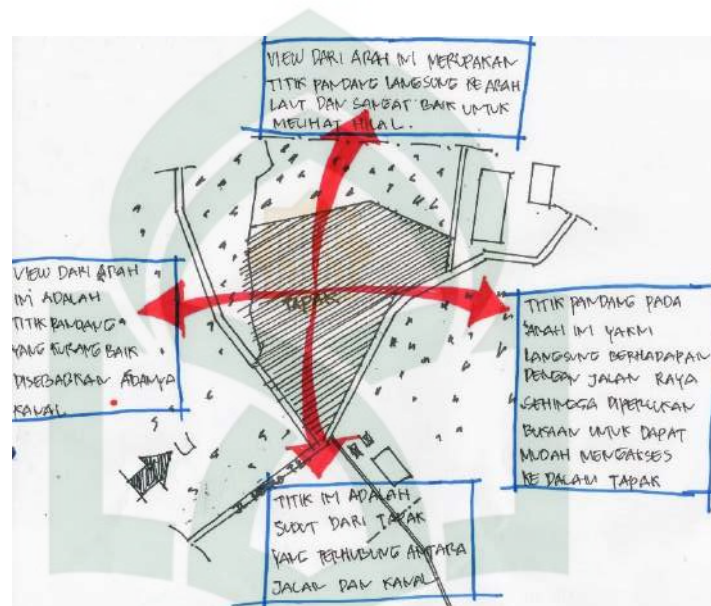 VIEW DARI ARAH INI MERUPAKAN
TITIK PANDANG LANGSUNG KE ARAH
LAUT DAN SANGAT BAIK UNTUK
MELIHAT HILAL.
VIEW DARI ARAH
INI ADALAH
TITIK PANDANG
YANG KURANG BAIK
DISEBABKAN ADANYA
KANAL
TAPAK
TITIK PANDANG PADA
ARAH INI YAKNI
LANGSUNG BERHADAPAN
DENGAN JALAN RAYA
SEHINGGA DIPERLUKAN
BUKAAN UNTUK DAPAT
MUDAH MENGAKSES
KE DALAM TAPAK
U
TITIK INI ADALAH
SUDUT DARI TAPAK
YANG TERHUBUNG ANTARA
JALAN DAN KANAL